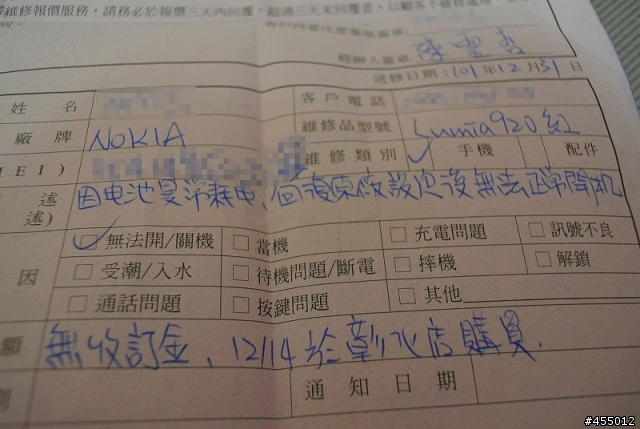 維修報價服務，請務必於報價三天內回覆，超過三天未回覆者，以顧客不維修處理，
經辦人簽章
送修日期：101年12月31日
姓 名
客戶電話
廠 牌 NOKIA 維修品型號 Lumia920紅
IMEI) 維修類別 ✓ 手機 配件
述
述) 因電池異常耗电、回復原廠設定後無法正常開机
✓ 無法開/關機 □ 當機 □ 充電問題 □ 訊號不良
因 □ 受潮/入水 □ 待機問題/斷電 □ 摔機 □ 解鎖
□ 通話問題 □ 按鍵問題 □ 其他
額 無收訂金、12/14於彰化店購買.
期 通知日期
#455012